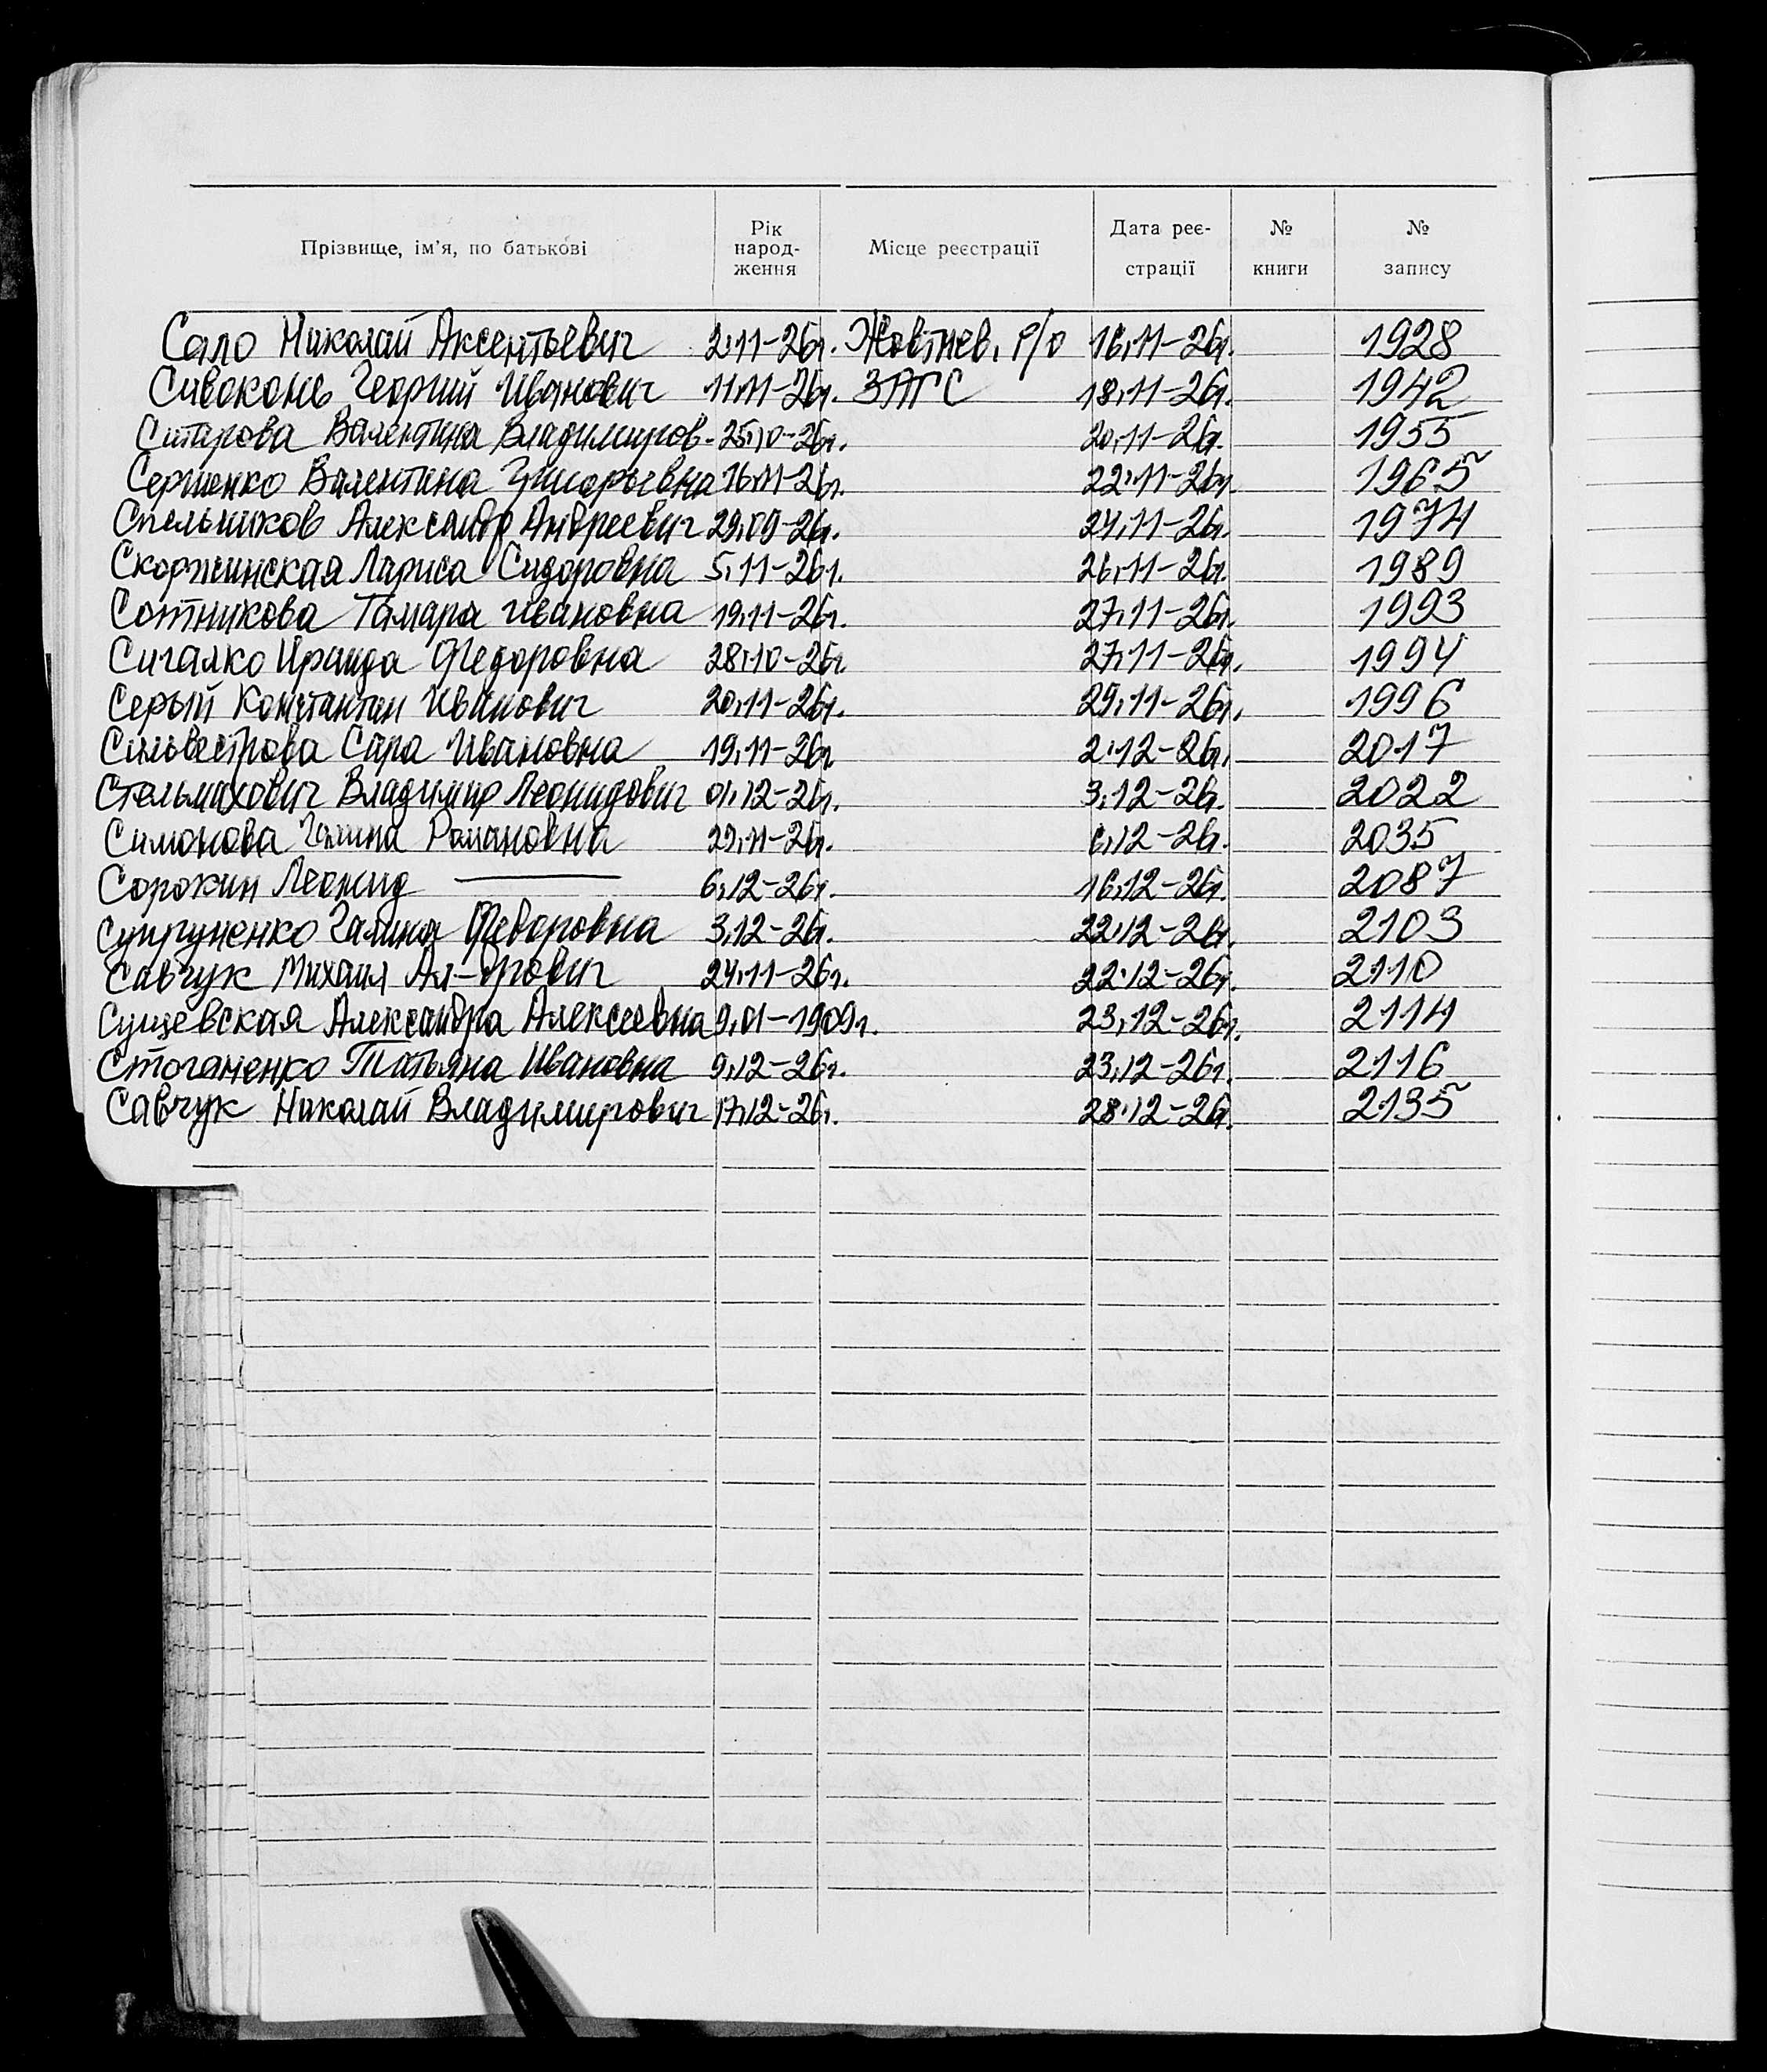 Прізвище, ім'я, по батькові Рік народ- ження Місце реєстрації Дата реє- страції № книги № запису
Сало Николай Аксентьевич 2.11-26г. Жовтнев. р/о 16.11-26г. 1928
Сивоконь Георгий Иванович 11.11-26г. ЗАГС 18.11-26г. 1942
Ситирова Валентина Владимиров- 25.10-26г. 20.11-26г. 1955
Сергиенко Валентина Григорьевна 16.11-26г. 22.11-26г. 1965
Стельников Александр Андреевич 29.09-26г. 24.11-26г. 1974
Скоржинская Лариса Сидоровна 5.11-26г. 26.11-26г. 1989
Сотникова Тамара Ивановна 19.11-26г. 27.11-26г. 1993
Сигалко Ираида Федоровна 28.10-26г. 27.11-26г. 1994
Серый Константин Иванович 20.11-26г. 29.11-26г. 1996
Сильвестрова Сара Ивановна 19.11-26г 2.12-26г. 2017
Стельмахович Владимир Леонидович 01.12-26г. 3.12-26г. 2022
Симонова Галина Романовна 29.11-26г. 6.12-26г. 2035
Сорокин Леонид — 6.12-26г. 16.12-26г. 2087
Супруненко Галина Федоровна 3.12-26г. 22.12-26г. 2103
Савчук Михаил Ал-дрович 24.11-26г. 22.12-26г. 2110
Сущевская Александра Алексеевна 9.01-1909г. 23.12-26г. 2114
Стоганенко Татьяна Ивановна 9.12-26г. 23.12-26г. 2116
Савчук Николай Владимирович 17.12-26г. 28.12-26г. 2135